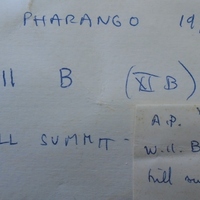 PHARANGO 19
11 B (XI B)
LL SUMMIT -
A.P.
W-11-B
hill su